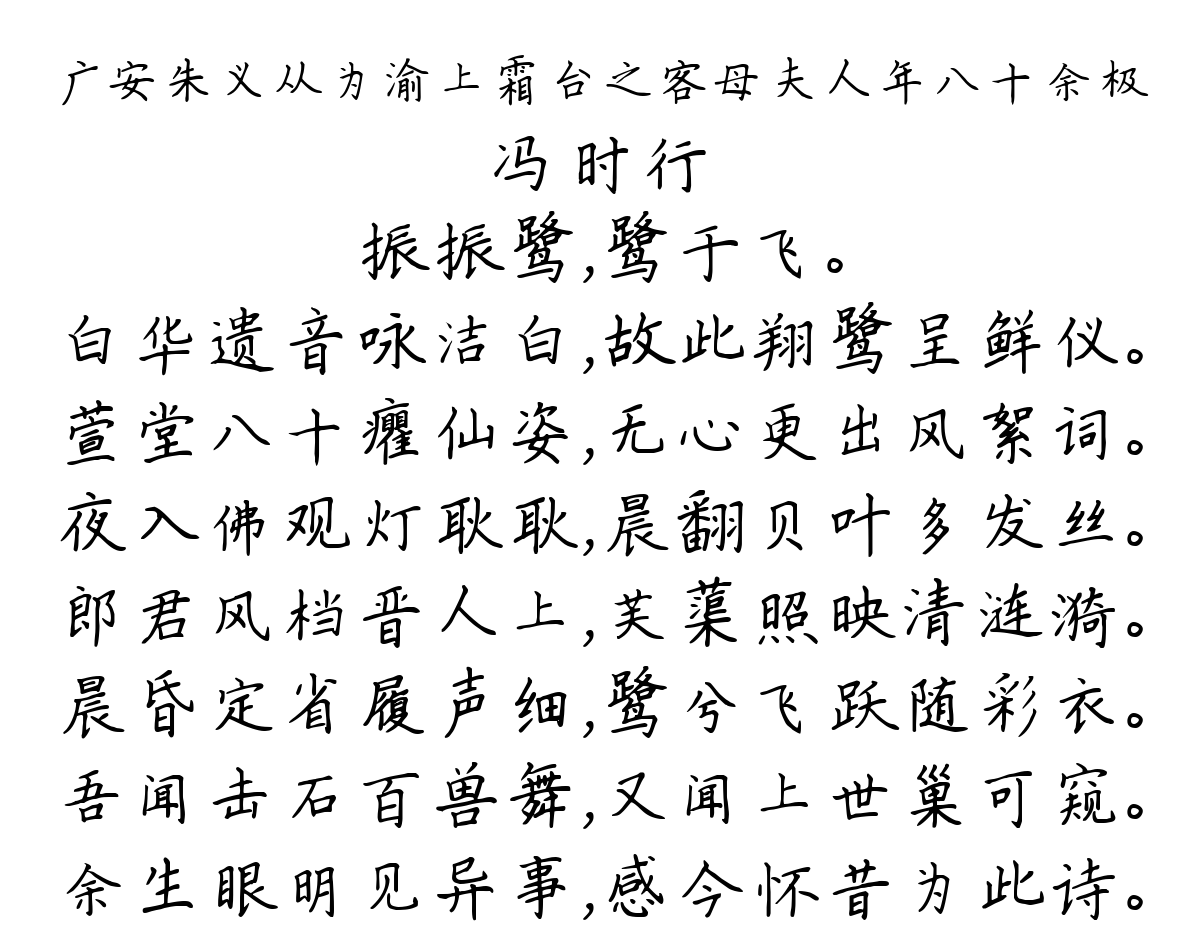 广安朱义从为渝上霜台之客母夫人年八十余极
冯时行
振振鹭,鹭于飞。
白华遗音咏洁白,故此翔鹭呈鲜仪。
萱堂八十癯仙姿,无心更出风絮词。
夜入佛观灯耿耿,晨翻贝叶多发丝。
郎君风档晋人上,芙蕖照映清涟漪。
晨昏定省履声细,鹭兮飞跃随彩衣。
吾闻击石百兽舞,又闻上世巢可窥。
余生眼明见异事,感今怀昔为此诗。